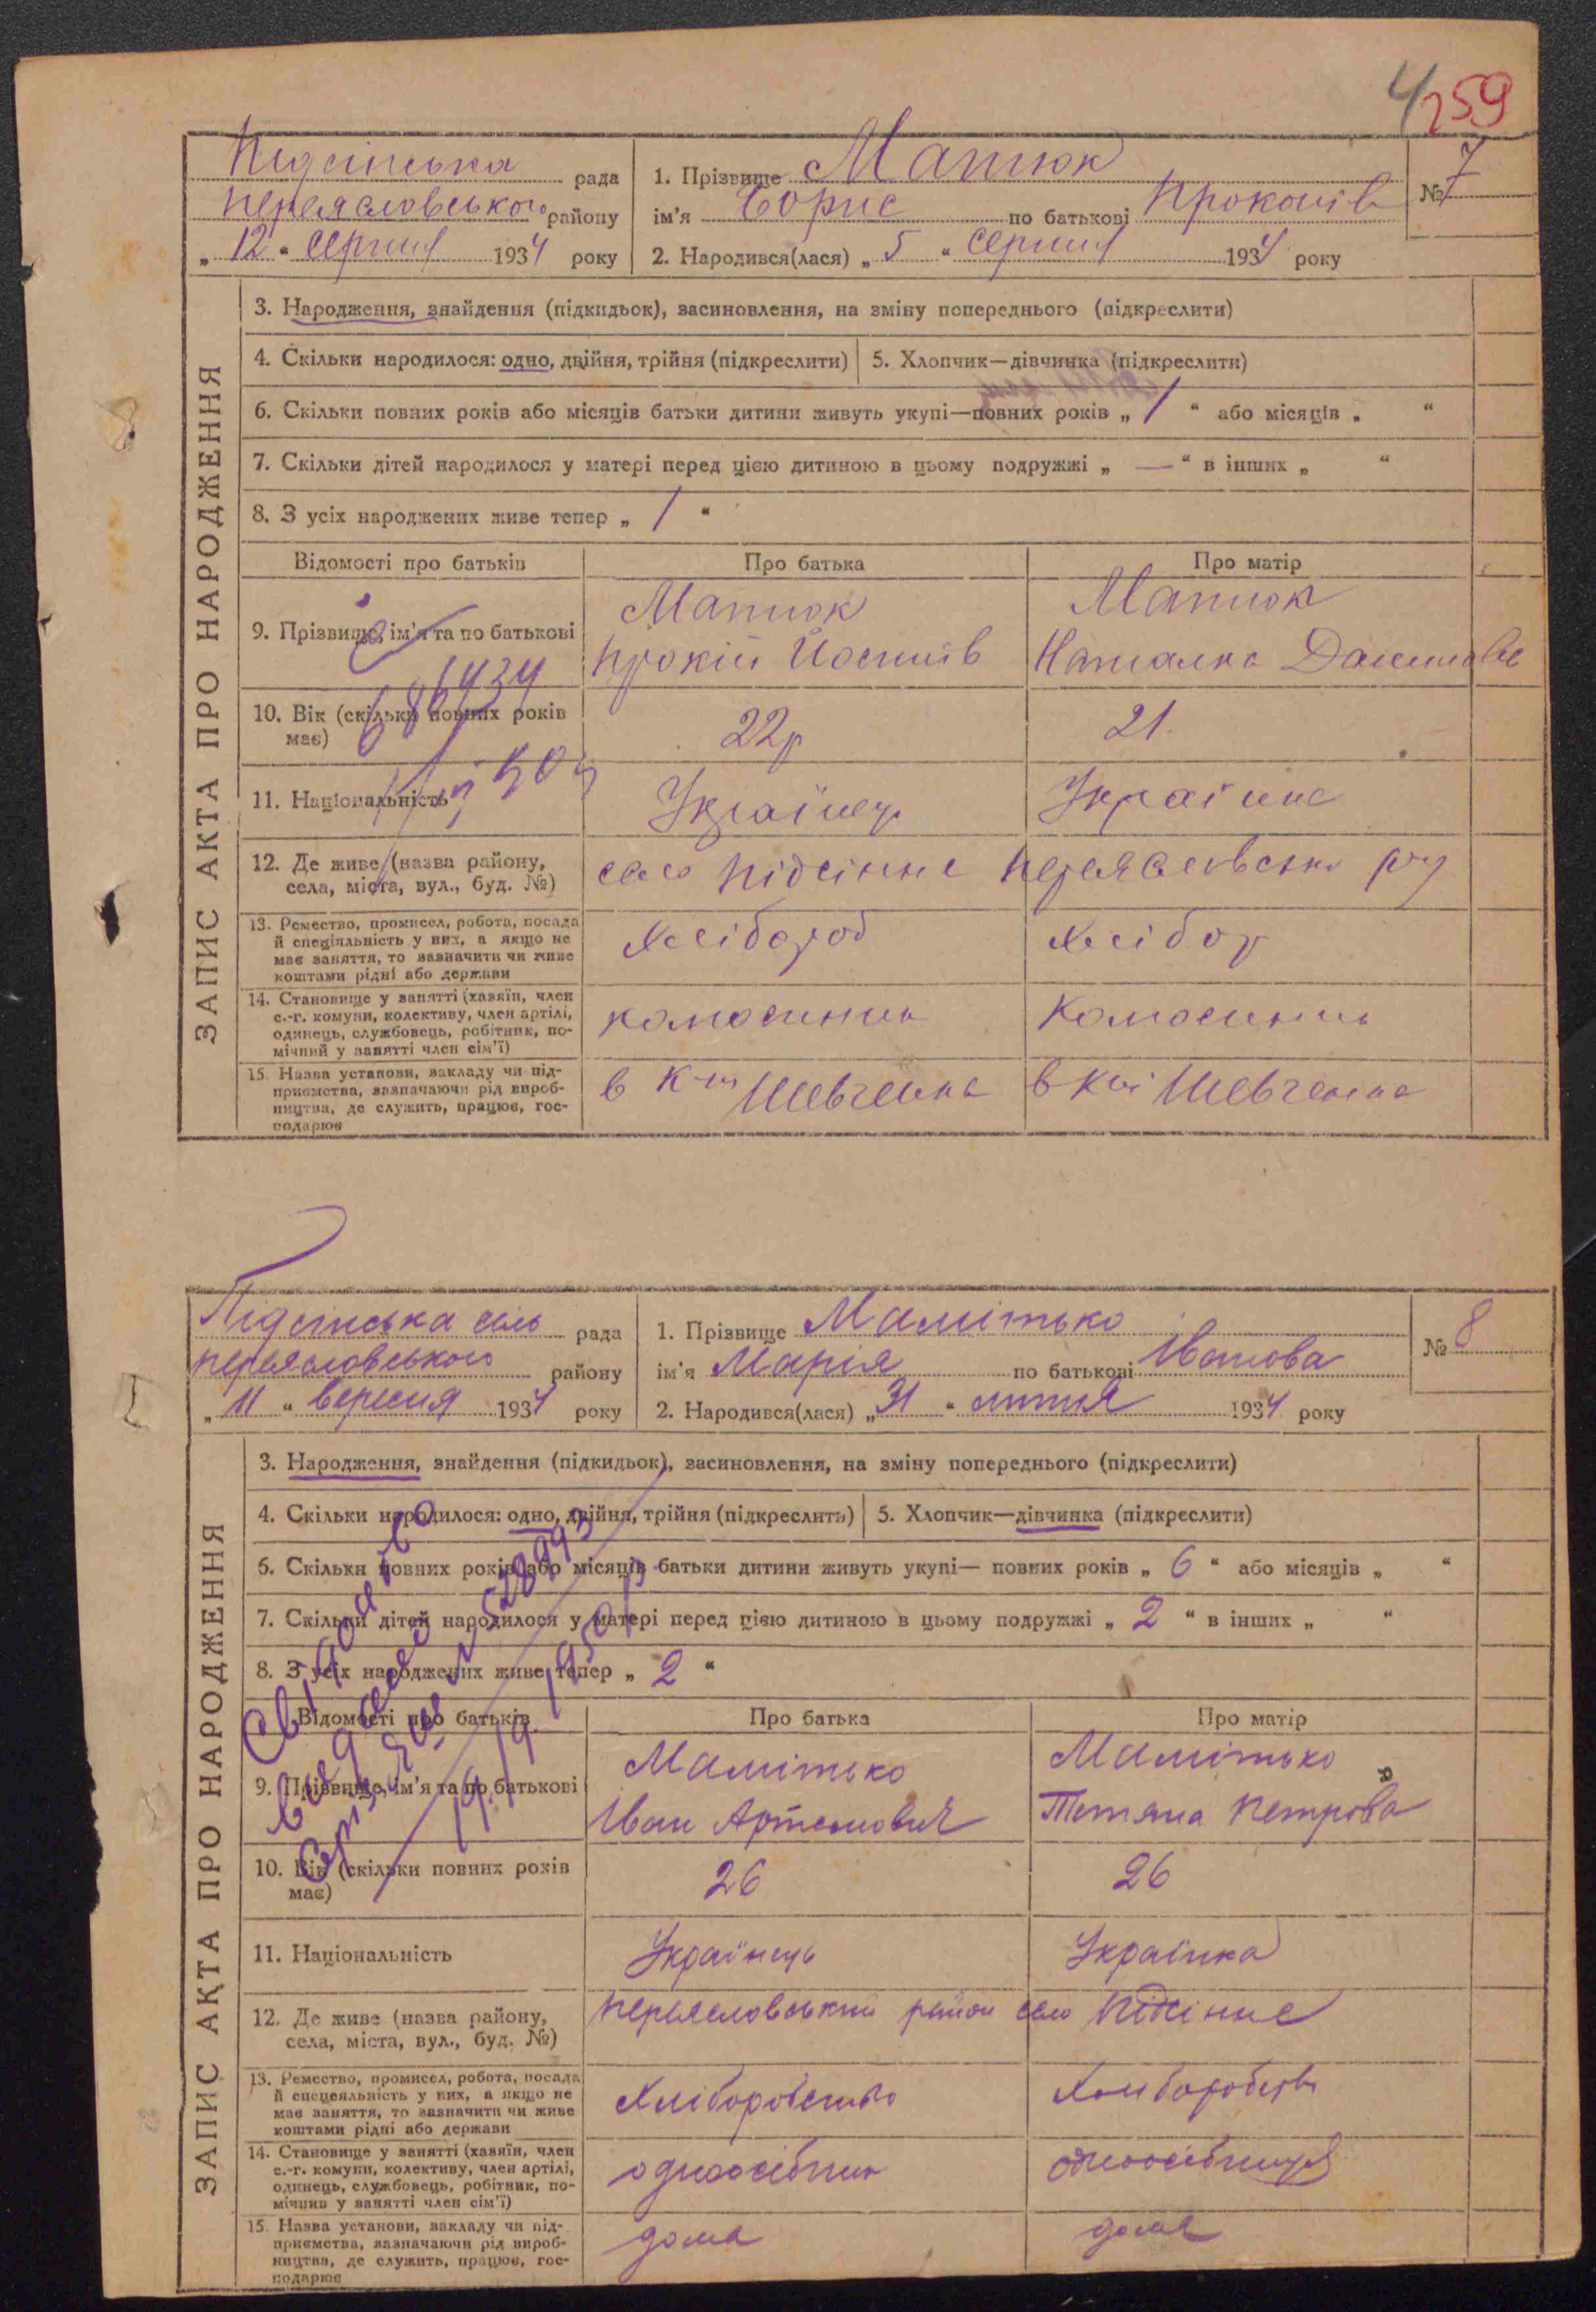 4 259
Підсінська рада
Переясловського району
„ 12 “ серпня 1934 року
1. Прізвище Матюк
ім'я Борис по батькові Прокопів
2. Народився(лася) „ 5 “ серпня 1934 року
№ 7
ЗАПИС АКТА ПРО НАРОДЖЕННЯ
3. Народження, знайдення (підкидьок), засиновлення, на зміну попереднього (підкреслити)
4. Скільки народилося: одно, двійня, трійня (підкреслити)
5. Хлопчик—дівчинка (підкреслити)
6. Скільки повних років або місяців батьки дитини живуть укупі—повних років „ 1 “ або місяців „ “
7. Скільки дітей народилося у матері перед цією дитиною в цьому подружжі „ — “ в інших „ “
8. З усіх народжених живе тепер „ 1 “
Відомості про батьків
Про батька
Про матір
9. Прізвище, ім'я та по батькові
Матюк
Прокіп Йосипів
Матюк
Наталка
10. Вік (скільки повних років має)
22р
21.
11. Національність
Українец
Українка
12. Де живе (назва району, села, міста, вул., буд. №)
село Підсінне Переясловсько рну
13. Ремество, промисел, робота, посада й спеціяльність у них, а якщо не має заняття, то зазначити чи живе коштами рідні або держави
Хлібороб
Хлібор
14. Становище у занятті (хазяїн, член с.-г. комуни, колективу, член артілі, одинець, службовець, робітник, помічний у занятті член сім'ї)
15. Назва установи, закладу чи підприємства, зазначаючи рід виробництва, де служить, працює, господарює
в к-ш Шевченка
в кш Шевченка
Підсінська село рада
Переясловського району
„ 11 “ вересня 1934 року
1. Прізвище Мамітько
ім'я Марія по батькові Іванова
2. Народився(лася) „ 31 “ липня 1934 року
№ 8
ЗАПИС АКТА ПРО НАРОДЖЕННЯ
3. Народження, знайдення (підкидьок), засиновлення, на зміну попереднього (підкреслити)
4. Скільки народилося: одно, двійня, трійня (підкреслить)
5. Хлопчик—дівчинка (підкреслити)
6. Скільки повних років або місяців батьки дитини живуть укупі— повних років „ 6 “ або місяців „ “
7. Скільки дітей народилося у матері перед цією дитиною в цьому подружжі „ 2 “ в інших „ “
8. З усіх народжених живе тепер „ 2 “
Відомості про батьків
Про батька
Про матір
9. Прізвище, ім'я та по батькові
Мамітько
Іван Артемович
Мамітько
Тетяна Петрова
10. Вік (скільки повних років має)
26
26
11. Національність
Українець
Українка
12. Де живе (назва району, села, міста, вул., буд. №)
Переясловський район село Підсінне
13. Ремество, промисел, робота, посада й спецеяльність у них, а якщо не має заняття, то зазначити чи живе коштами рідні або держави
Хліборобство
Хліборобств
14. Становище у занятті (хазяїн, член с.-г. комуни, колективу, член артілі, одинець, службовець, робітник, помічник у занятті член сім'ї)
одноосібник
одноосібниця
15. Назва установи, закладу чи підприємства, зазначаючи рід виробництва, де служить, працює, господарює
дома
дома